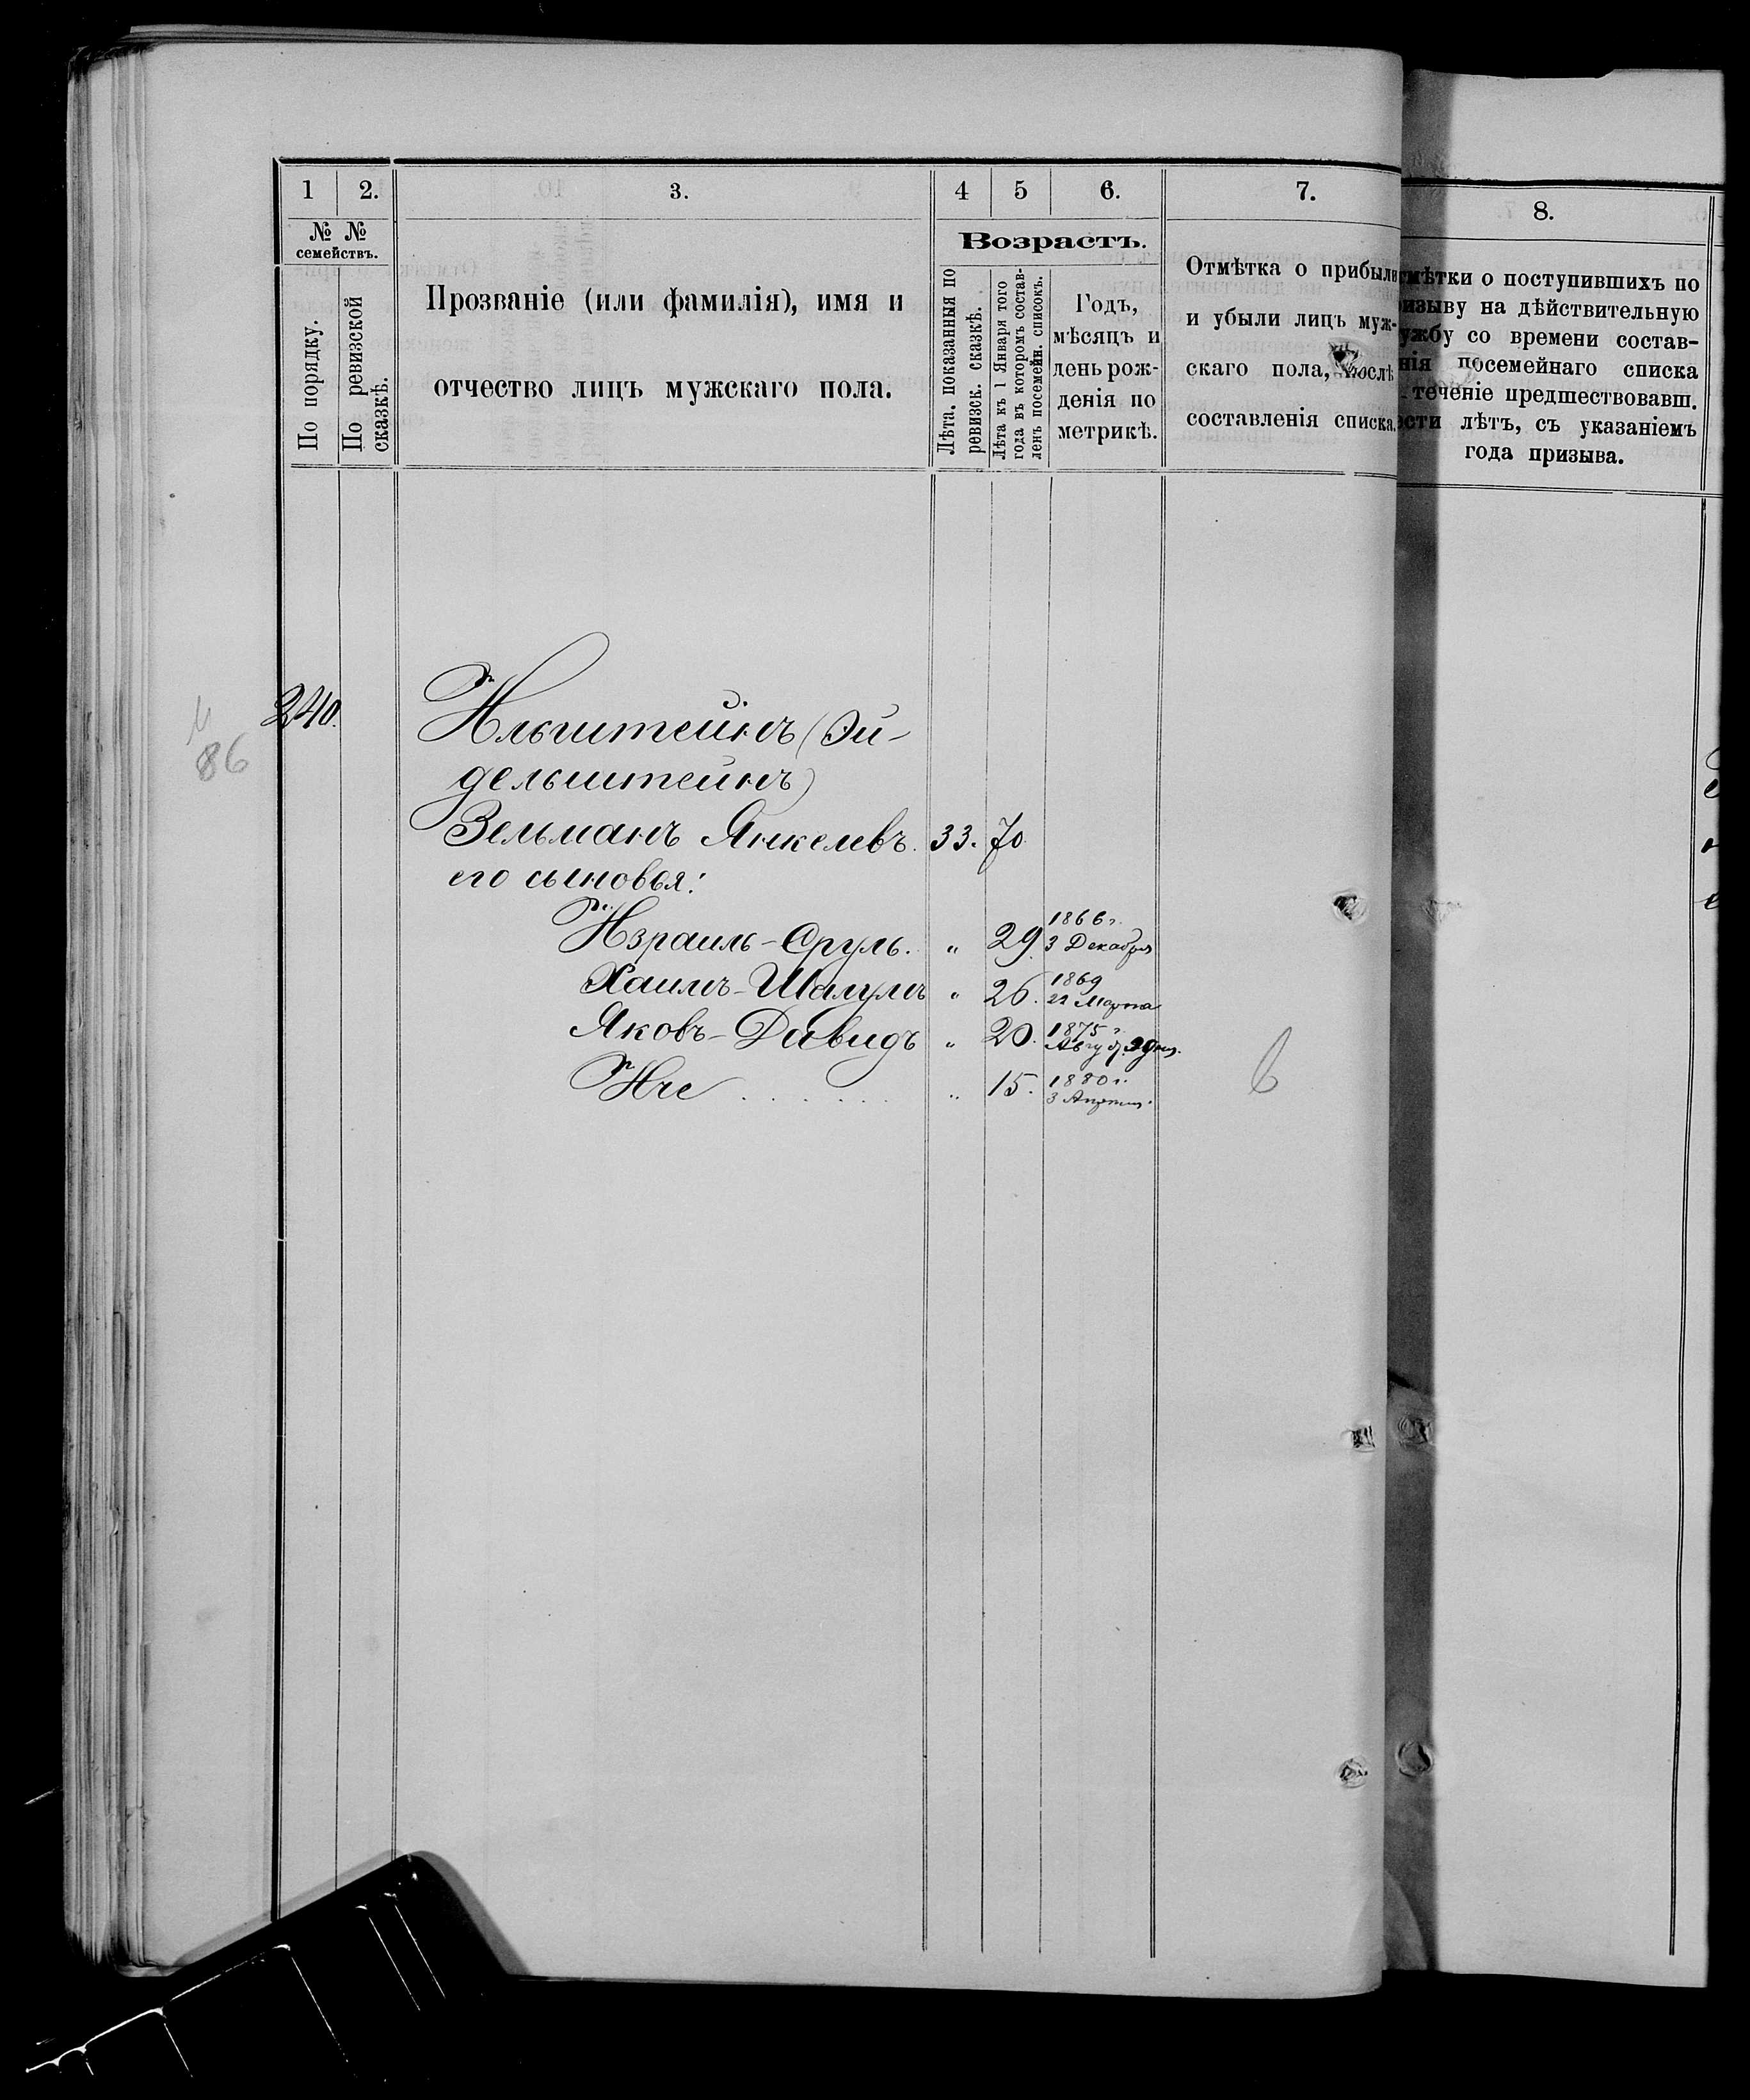 1 2. 3. 4 5 6. 7.
8.
№ № семействъ.
По порядку.
По ревизской сказкѣ.
Прозваніе (или фамилія), имя и
отчество лицъ мужскаго пола.
Возрастъ.
Лѣта, показанныя по
ревизск. сказкѣ.
Лѣта къ 1 Января того
года въ которомъ состав-
ленъ посемейн. списокъ.
Годъ,
мѣсяцъ и
день рож-
денія по
метрикѣ.
Отмѣтка о прибыли
и убыли лицъ муж-
скаго пола, послѣ
составленія списка.
мѣтки о поступившихъ по
изыву на дѣйствительную
ужбу со времени состав-
нія посемейнаго списка
теченіе предшествовавш.
сти лѣтъ, съ указаніемъ
года призыва.
86
240. Ильштейнъ (Эй-
дельштейнъ)
Зельманъ Янкелевъ. 33. 70
его сыновья:
Израиль-Сруль. „ 29. 1866 г.
3 Декабря
Хаимъ-Шалумъ „ 26. 1869
22 Марта
Яковъ-Давидъ „ 20. 1875 г.
Иче . . . . . . „ 15. 1880 г.
3 Апрѣля.